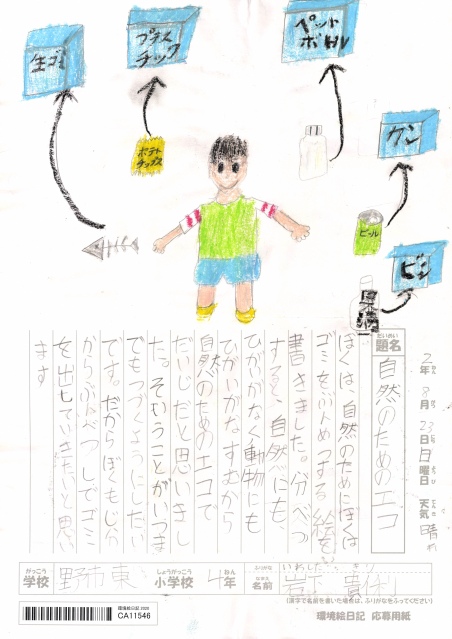 生ゴミ
プラスチック
ペットボトル
カン
ビン
ポテトチップス
ビール
だいめい
題名
自然のためのエコ
2年8月23日日曜日 天気 晴れ
ぼくは、自然のためにぼくは
ゴミをぶんめつする 絵を
書きました。分べつ
すると、自然にも、
ひがいがなく動物にも
ひがいがなすむから
自然のためのエコで
だいじだと思いまし
た。そういうことがいつま
でもつづくようにしたい
です。だからぼくもじ分
からぶんべつしてゴミ
を出していきたいと思い
ます
がっこう
学校
野市東
しょうがっこう
小学校
4年
ねん
ふりがな
いわした
なまえ
名前
岩下
(漢字で名前を書いた場合は、ふりがなをふってください)
環境絵日記 2020
CA11546
環境絵日記 応募用紙